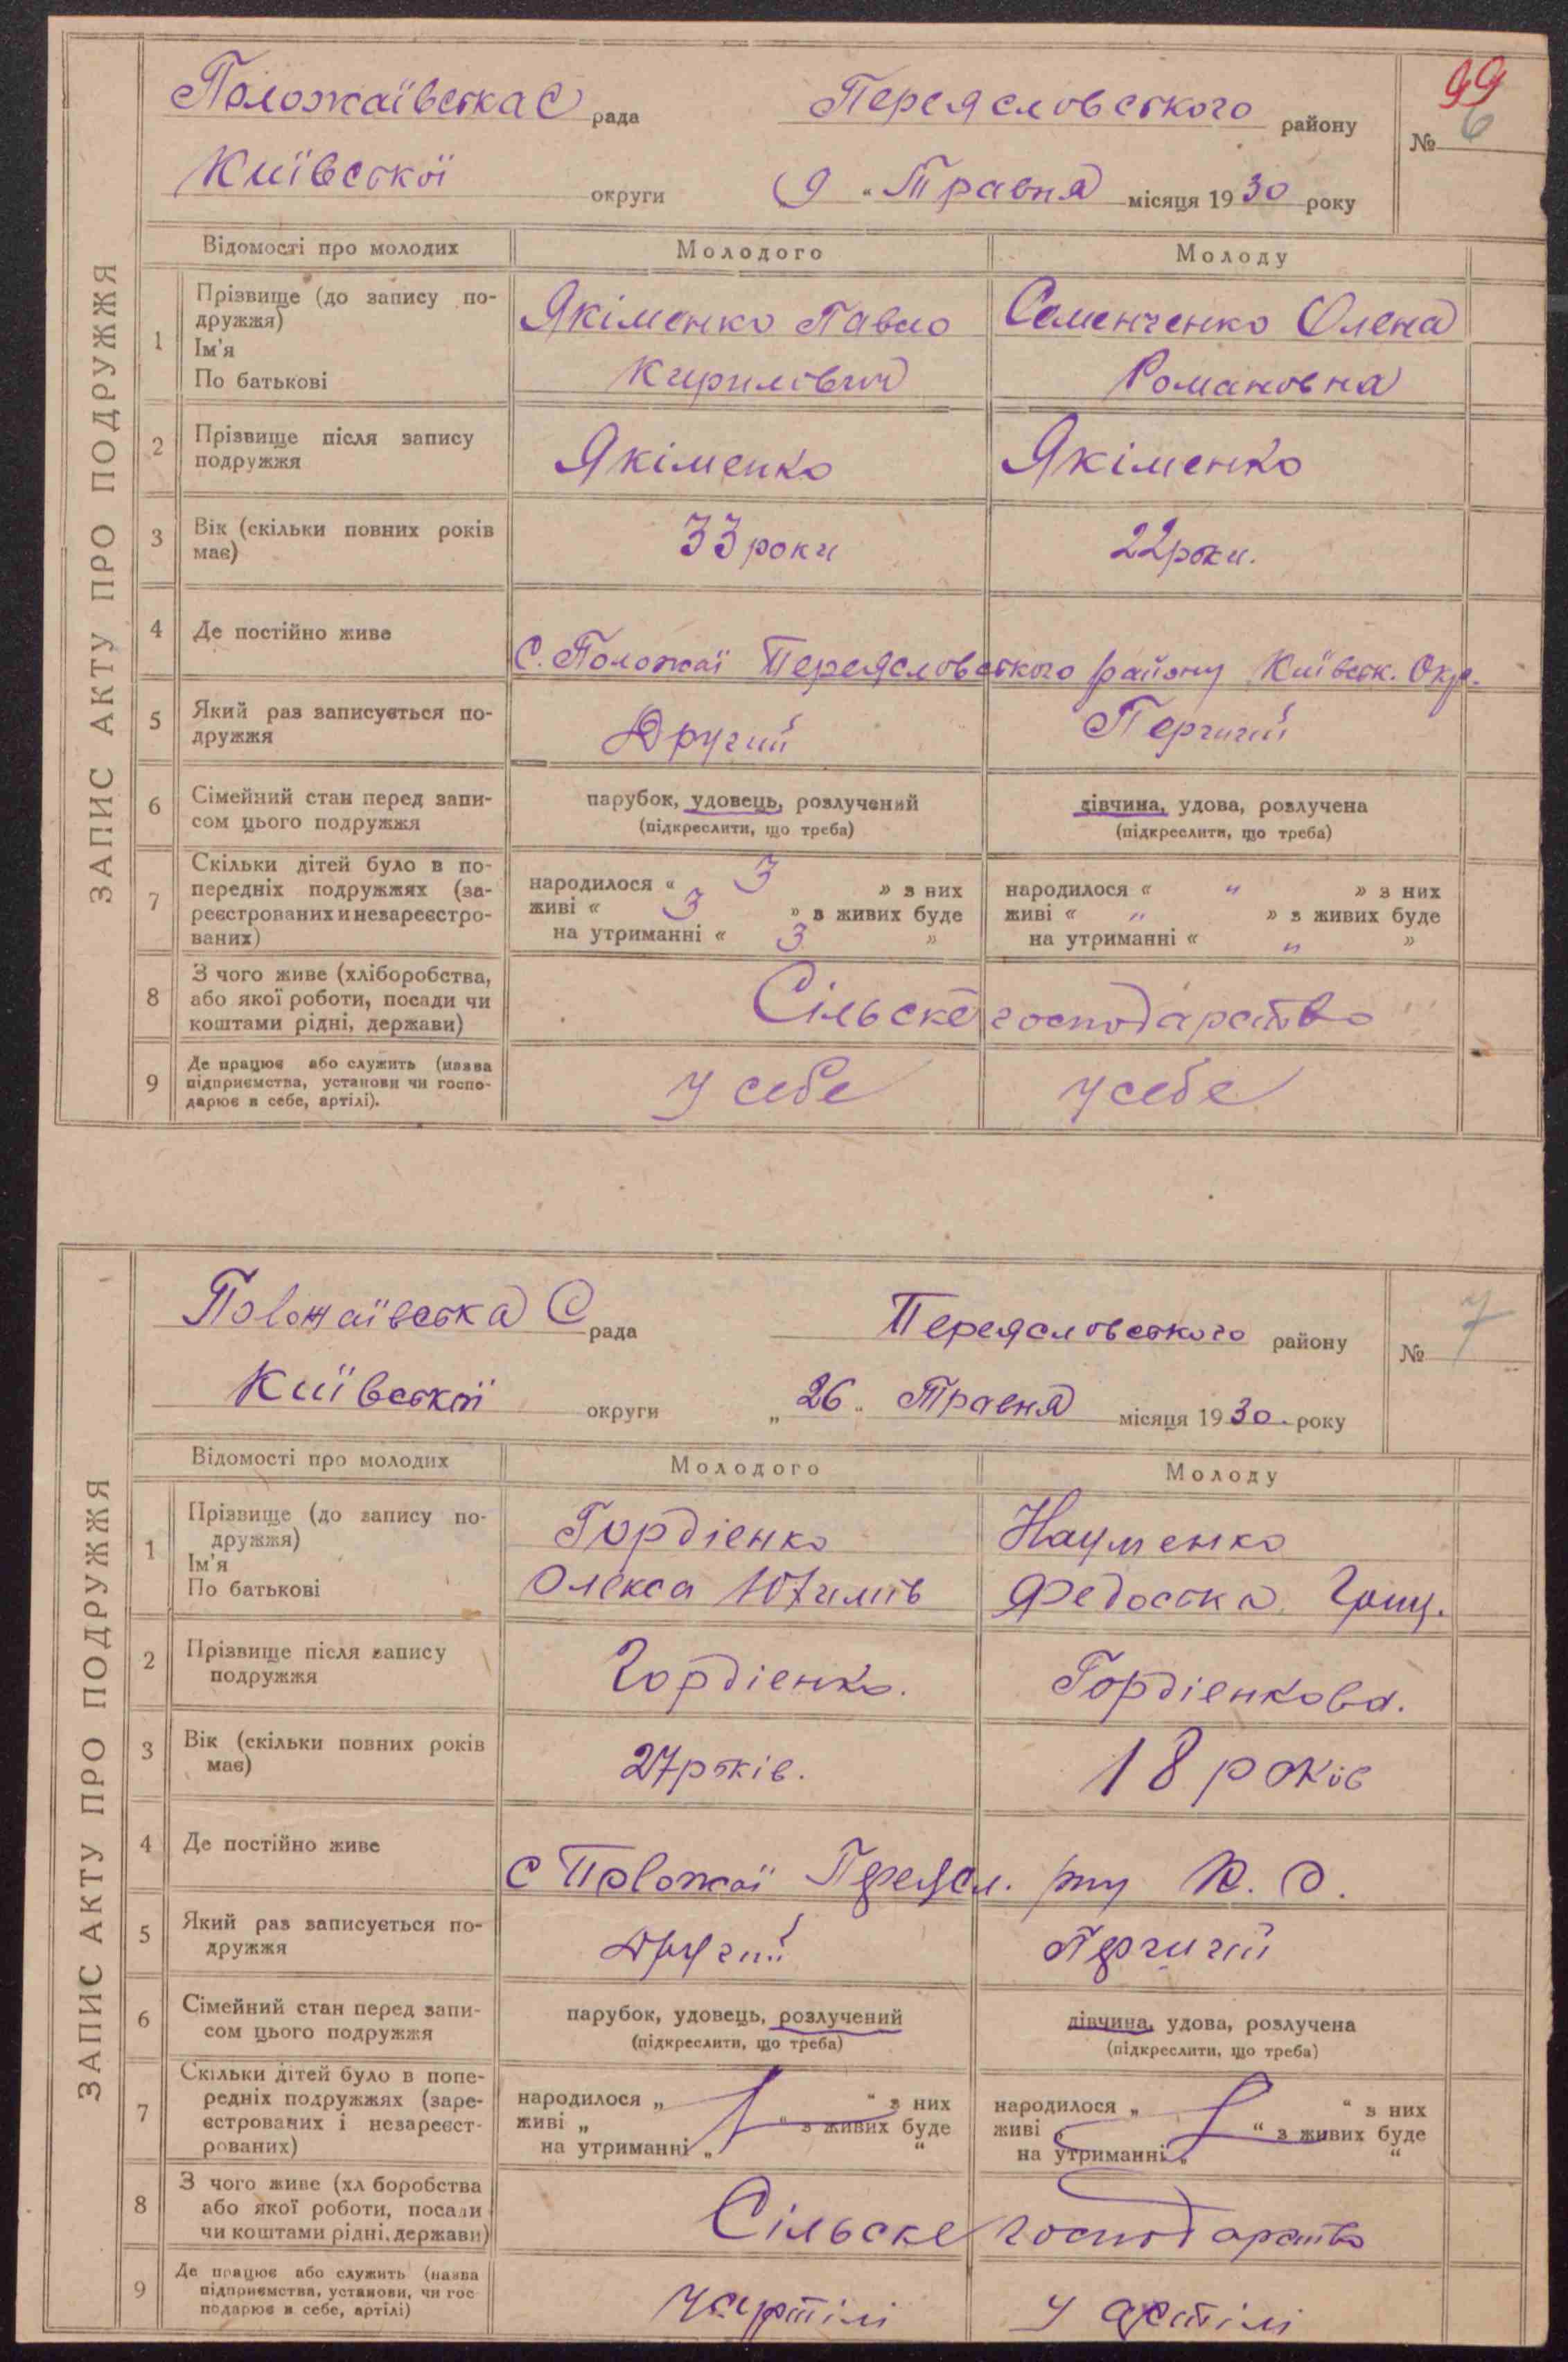 ЗАПИС АКТУ ПРО ПОДРУЖЖЯ
99
Положаївська С рада Переясловського району № 6
Київської округи 9 " Травня місяця 1930 року
Відомості про молодих Молодого Молоду
1 Прізвище (до запису по-
дружжя)
Ім'я
По батькові
Якіменко Павло
Кирилович
Семенченко Олена
Романовна
2 Прізвище після запису
подружжя
Якіменко Якіменко
3 Вік (скільки повних років
має)
33 роки 22 роки.
4 Де постійно живе
С. Положаї Переясловського району Київськ. Окр.
5 Який раз записується по-
дружжя
Другий Перчий
6 Сімейний стан перед запи-
сом цього подружжя
парубок, удовець, розлучений
(підкреслити, що треба)
дівчина, удова, розлучена
(підкреслити, що треба)
7 Скільки дітей було в по-
передніх подружжях (за-
реєстрованих и незареєстро-
ваних)
народилося « 3 » з них
живі « 3 » з живих буде
на утриманні « 3 »
народилося « " » з них
живі « " » з живих буде
на утриманні « " »
8 З чого живе (хліборобства,
або якої роботи, посади чи
коштами рідні, держави)
Сільске господарство
9 Де працює або служить (назва
підприємства, установи чи госпо-
дарює в себе, артілі).
у себе у себе
ЗАПИС АКТУ ПРО ПОДРУЖЖЯ
Положаївська С рада Переясловського району № 7
Київської округи „ 26 „ Травня місяця 1930. року
Відомості про молодих Молодого Молоду
1 Прізвище (до запису по-
дружжя)
Ім'я
По батькові
Гордієнко
Олекса Юхимів
Науменко
Федоська
2 Прізвище після запису
подружжя
Гордієнко. Гордієнкова.
3 Вік (скільки повних років
має)
27 років. 18 років
4 Де постійно живе
С Положаї Переясл. р-ну К. О.
5 Який раз записується по-
дружжя
Другий Перчий
6 Сімейний стан перед запи-
сом цього подружжя
парубок, удовець, розлучений
(підкреслити, що треба)
дівчина, удова, розлучена
(підкреслити, що треба)
7 Скільки дітей було в попе-
редніх подружжях (заре-
єстрованих і незареєст-
рованих)
народилося „ “ з них
живі „ “ з живих буде
на утриманні „ “
народилося „ “ з них
живі „ “ з живих буде
на утриманні „ “
8 З чого живе (хл боробства
або якої роботи, посади
чи коштами рідні, держави)
Сільске господарство
9 Де працює або служить (назва
підприємства, установи, чи гос
подарює в себе, артілі)
у артілі у артілі